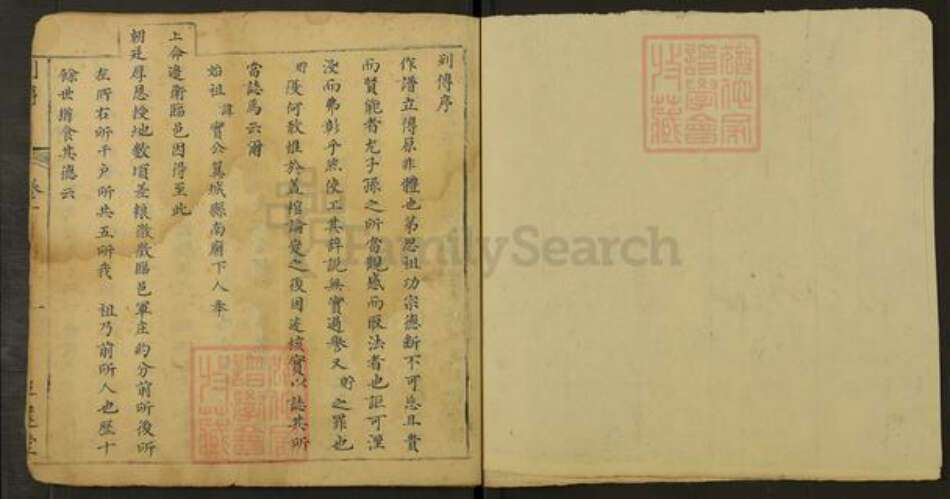 列傳序
作譜立傳原非體也第思祖功宗德斷不可忘且貴
而賢能者尤子孫之所當觀感而取法者也詎可湮
沒而弗彰乎然使工其辭說無實過譽又 之罪也
陵何敢惟於蓋棺論定之後因迹核實以誌其所
當誌焉云爾
始祖諱實公冀城縣南廟下人奉
上命邊衛臨邑因得至此
朝廷厚恩授地數頃差糧徵臨邑軍庄約分前所後所
左所右所千戶所共五所我 祖乃前所人也歷十
餘世猶食其德云
FamilySearch